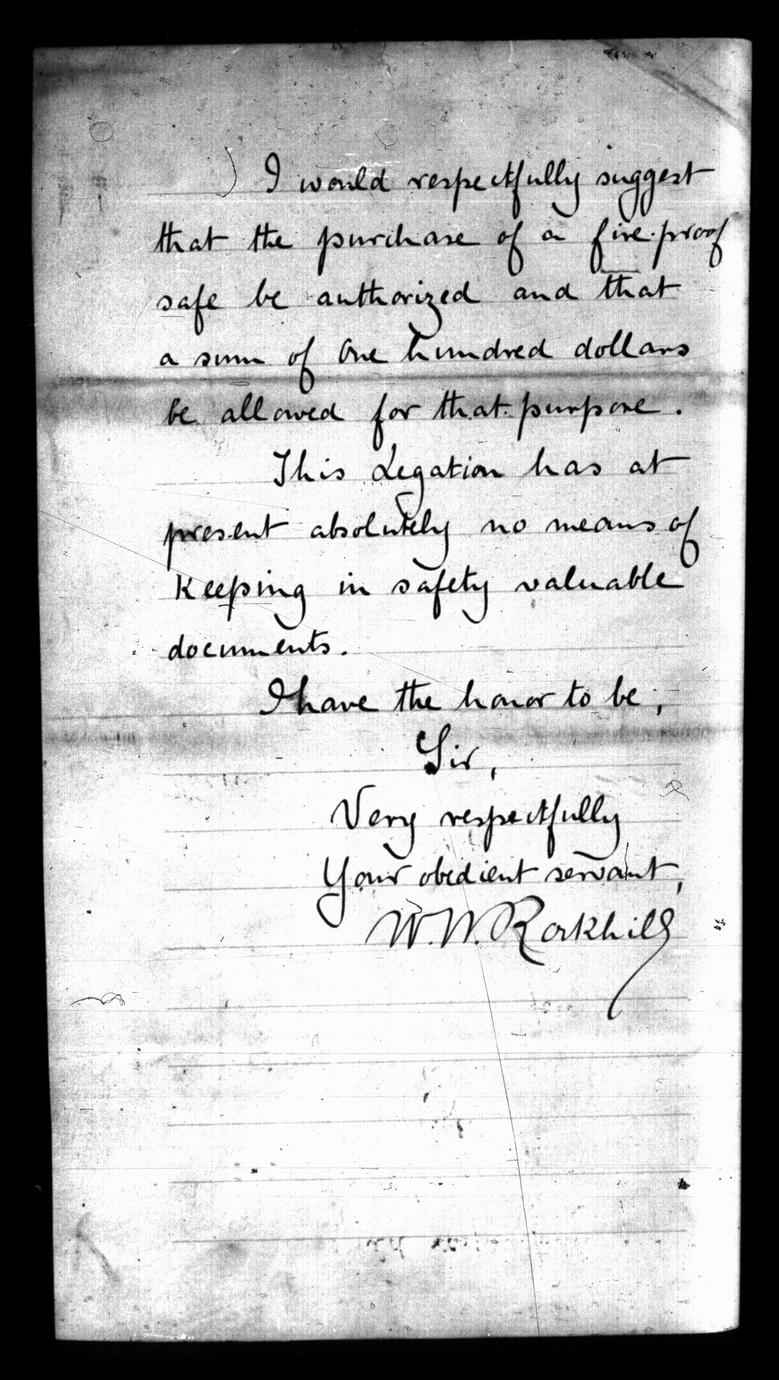 I would respectfully suggest
that the purchase of a fire-proof
safe be authorized and that
a sum of One hundred dollars
be allowed for that purpose.
This Legation has at
present absolutely no means of
keeping in safety valuable
documents.
I have the honor to be,
Sir,
Very respectfully
Your obedient servant,
W. W. Rockhill